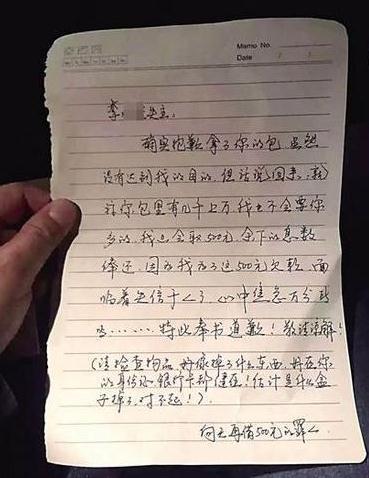 Memo No.
Date
李 先生：
稍显抱歉拿了你的包，虽然
没有达到我的目的，但话说回来，就
算你包里有几千上万，我也不会要你
多的，我也会取500元，余下的悉数
奉还，因为我为了这500元欠款，面
临着失信于人了，心中焦急万分
……特此奉书道歉！敬请谅解！
（请检查物品，好像掉了什么东西，好在你
的身份证、银行卡都健在！估计是什么盒
子掉了，对不起！）
向天再借500元的罪人